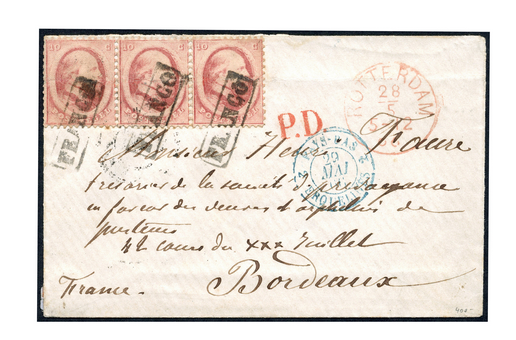 10 C 10 C 10 C
FRANCO FRANCO FRANCO
P.D.
ROTTERDAM
28
5
PAYS-BAS
29
MAI
Monsieur Henri Faure
trésorier de la société de prévoyance
en faveur des veuves & orphelins de
pasteurs
42 cours du xxx Juillet
Bordeaux
France
400.-